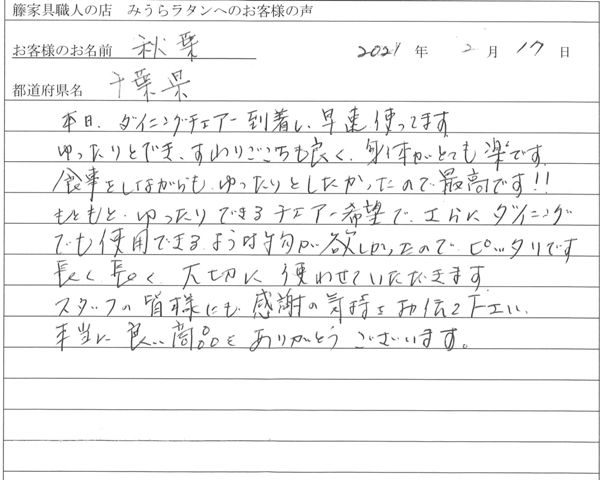 籐家具職人の店 みうらラタンへのお客様の声
お客様のお名前 秋葉 2021年 2月 17日
都道府県名 千葉県
本日、ダイニングチェアー到着し、早速使ってます
ゆったりとでき、すわりごこちも良く、身体がとても楽です。
食事をしながらも、ゆったりとしたかったので最高です!!
もともと、ゆったりできるチェアー希望で、さらにダイニング
でも使用できるような物が欲しかったので ピッタリです
長く長く 大切に使わせていただきます
スタッフの皆様にも感謝の気持をお伝え下さい。
本当に良い商品をありがとうございます。